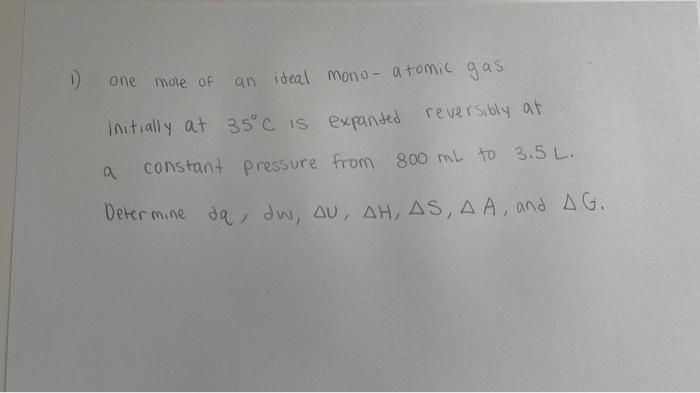 1) one mole of an ideal mono-atomic gas
initially at 35°C is expanded reversibly at
a constant pressure from 800 mL to 3.5 L.
Determine dq, dw, ΔU, ΔH, ΔS, ΔA, and ΔG.